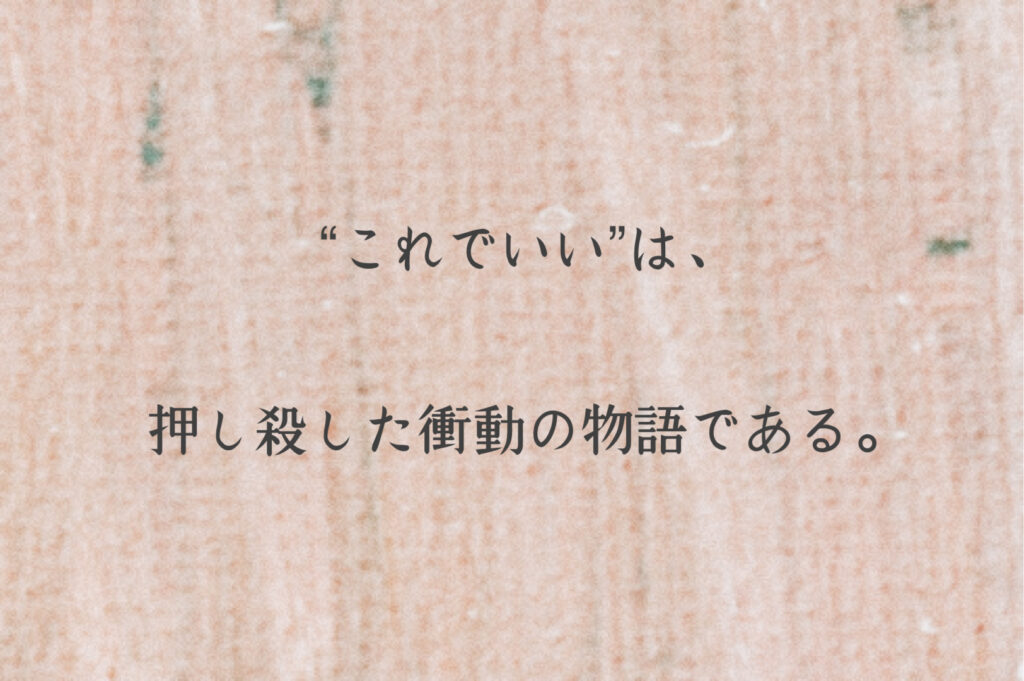 “これでいい”は、
押し殺した衝動の物語である。